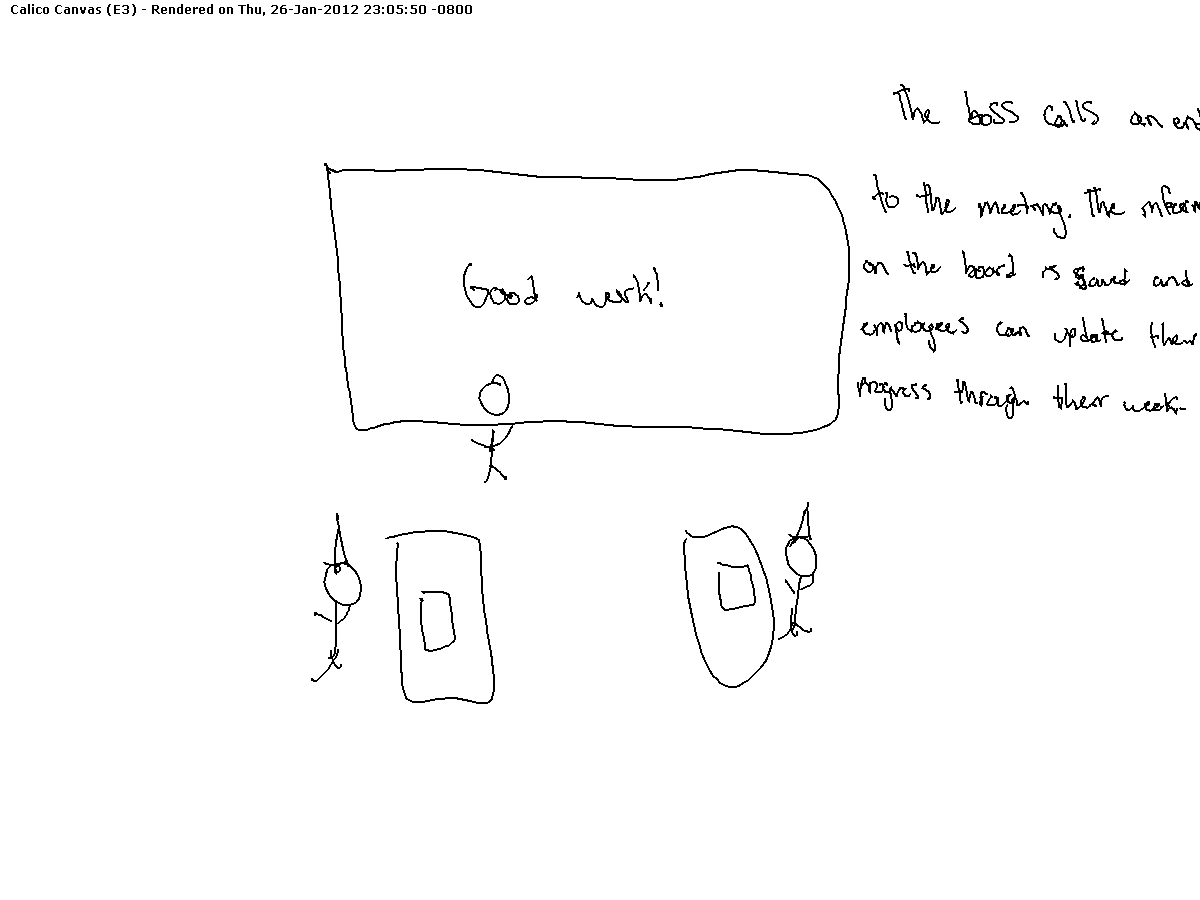 Calico Canvas (E3) - Rendered on Thu, 26-Jan-2012 23:05:50 -0800
The boss calls an end
to the meeting. The inform
on the board is saved and
employees can update their
progress through their week-
Good work!